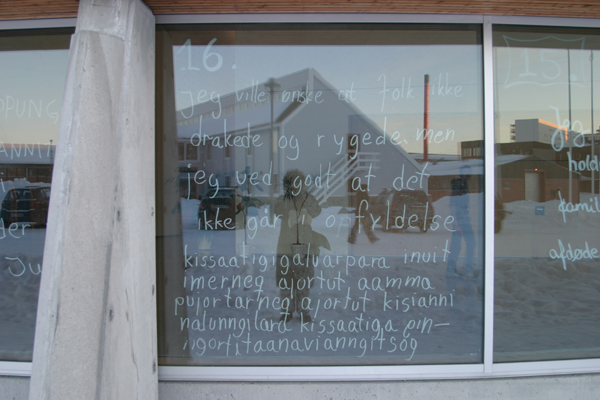 OPUNG
16.
15.
jeg ville ønske at folk ikke
drakede og rygede. men
jeg ved godt at det
ikke går i opfyldelse
kissaatigigaluarpara inuit
imerneq ajortut, aamma
pujortarneq ajortut kisianni
nalunngilara kissaatiga pin-
ngortitaanavianngitsoq
der
Ju
Jeg
hold
famil
afdøde